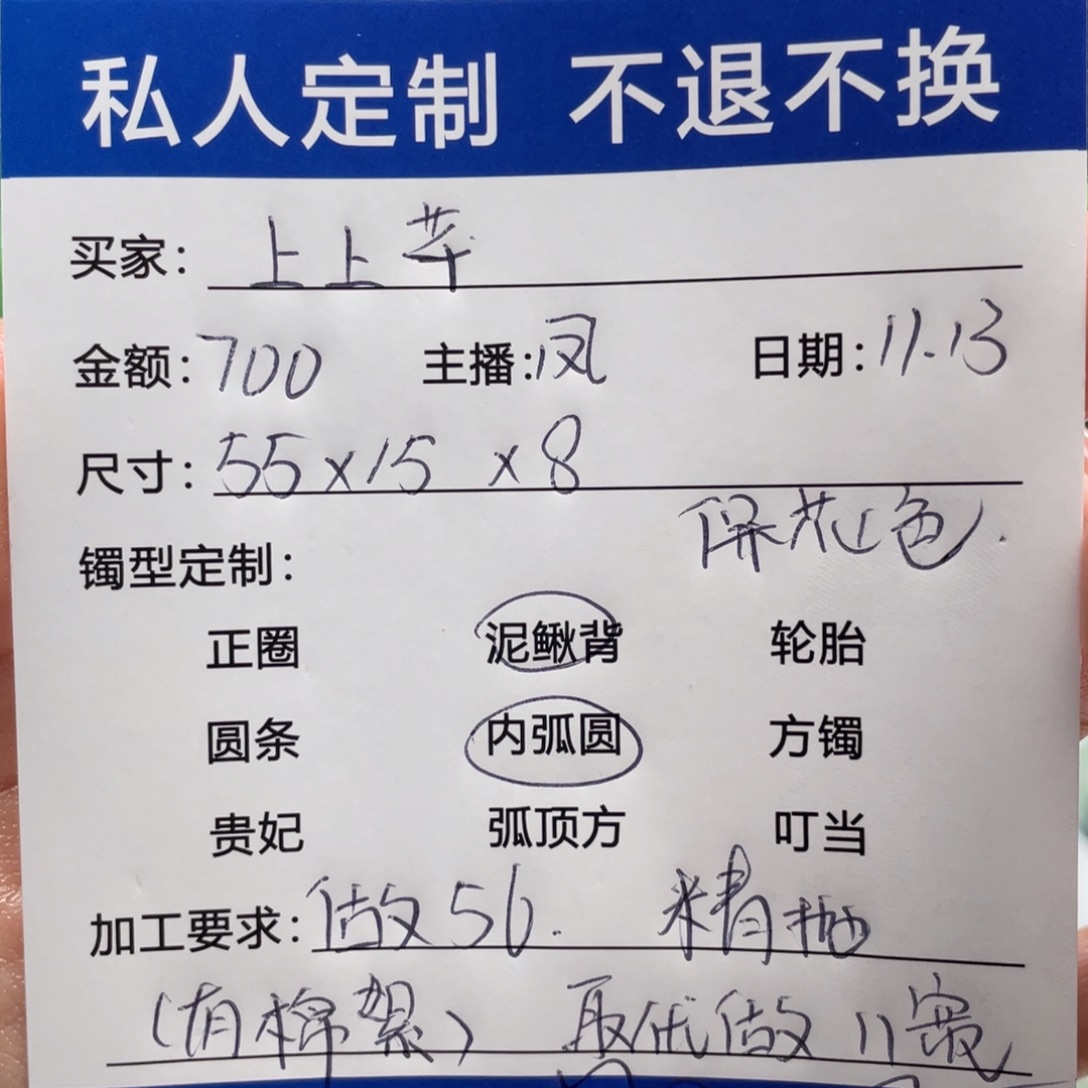 私人定制 不退不换
买家: 上上苹
金额:700 主播:凤 日期:11.13
尺寸:55×15 ×8
保花色.
镯型定制:
正圈 泥鳅背 轮胎
圆条 内弧圆 方镯
贵妃 弧顶方 叮当
加工要求:做56. 精抛
(有棉絮) 取优做11宽